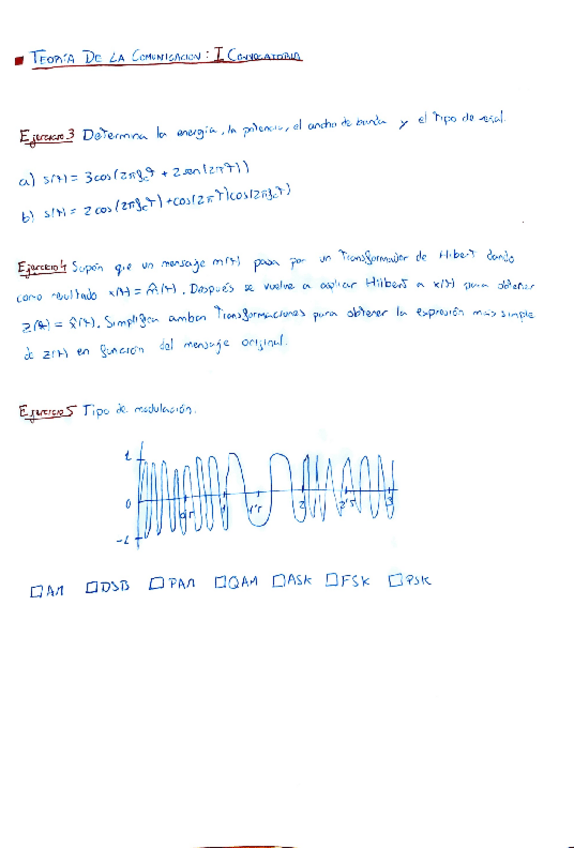 TEORÍA DE LA COMUNICACION: I CONVOCATORIA
Ejercicio 3 Determina la energía, la potencia, el ancho de banda y el tipo de señal.
a) s(t) = 3cos(2πfct + 2sen(2πt))
b) s(t) = 2cos(2πfct) + cos(2πt)cos(2πfct)
Ejercicio 4 Supón que un mensaje m(t) pasa por un Transformador de Hilbert dando
como resultado x(t) = m̂(t). Después se vuelve a aplicar Hilbert a x(t) para obtener
z(t) = x̂(t). Simplifica ambas Transformaciones para obtener la expresión más simple
de z(t) en función del mensaje original.
Ejercicio 5 Tipo de modulación.
1
0
-1
0'5 1 1'5 2 2'5 3
□AM □DSB □PAM □QAM □ASK □FSK □PSK